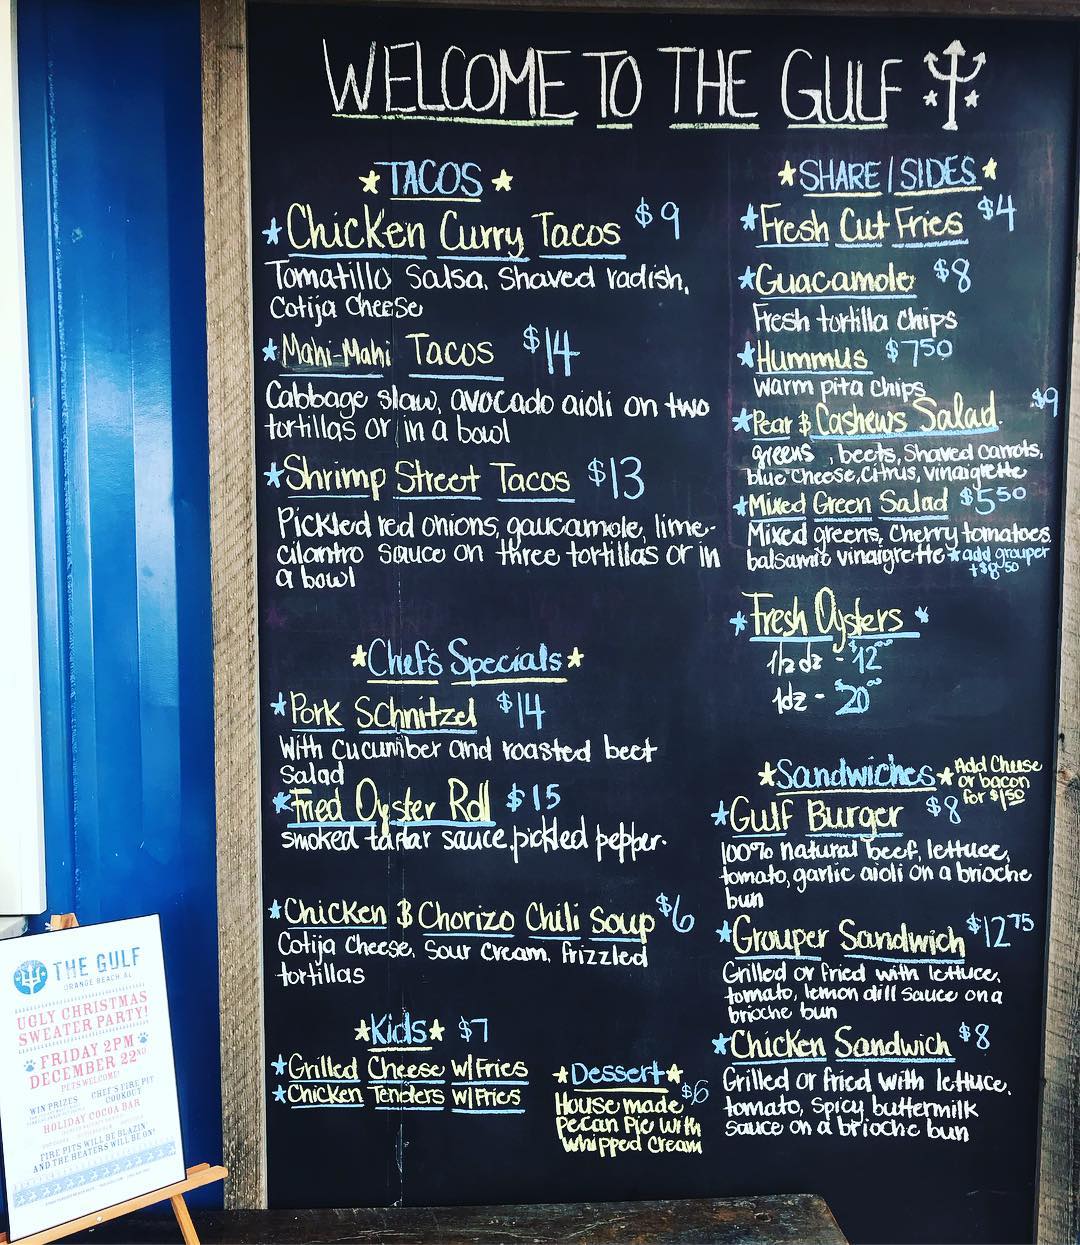 WELCOME TO THE GULF
TACOS
Chicken Curry Tacos $9
Tomatillo Salsa, Shaved radish,
Cotija Cheese
Mahi-Mahi Tacos $14
Cabbage slaw, avocado aioli on two
tortillas or in a bowl
Shrimp Street Tacos $13
Pickled red onions, gaucamole, lime-
cilantro sauce on three tortillas or in
a bowl
Chef's Specials
Pork Schnitzel $14
With cucumber and roasted beet
Salad
Fried Oyster Roll $15
smoked tartar sauce, pickled pepper.
Chicken & Chorizo Chili Soup $6
Cotija Cheese, Sour Cream, frizzled
tortillas
Kids $7
Grilled Cheese w/Fries
Chicken Tenders w/Fries
Dessert
$6
House made
Pecan Pie with
Whipped Cream
SHARE / SIDES
Fresh Cut Fries $4
Guacamole $8
Fresh tortilla Chips
Hummus $750
Warm pita Chips
Pear & Cashews Salad $9
greens, beets, Shaved Carrots,
blue Cheese, Citrus, vinaigrette
Mixed Green Salad $550
Mixed greens, Cherry tomatoes
balsamic vinaigrette *add grouper
+$8.50
Fresh Oysters
1/2 dz - $12.00
1dz - 20.00
Sandwiches
Add Cheese
or bacon
for $1.50
Gulf Burger $8
100% natural beef, lettuce,
tomato, garlic aioli on a brioche
bun
Grouper Sandwich $12.75
Grilled or fried with lettuce,
tomato, lemon dill sauce on a
brioche bun
Chicken Sandwich $8
Grilled or fried with lettuce,
tomato, Spicy buttermilk
sauce on a brioche bun
THE GULF
ORANGE BEACH AL
UGLY CHRISTMAS
SWEATER PARTY!
FRIDAY 2PM
DECEMBER 22ND
PETS WELCOME!
WIN PRIZES
CHEF'S FIRE PIT
COOKOUT
HOLIDAY COCOA BAR
FIRE PITS WILL BE BLAZIN
AND THE HEATERS WILL BE ON!